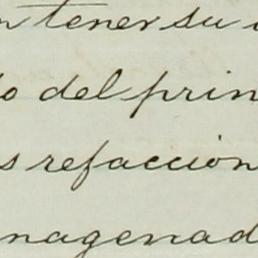 n tener su
o del prin
s refaccion
nagenad